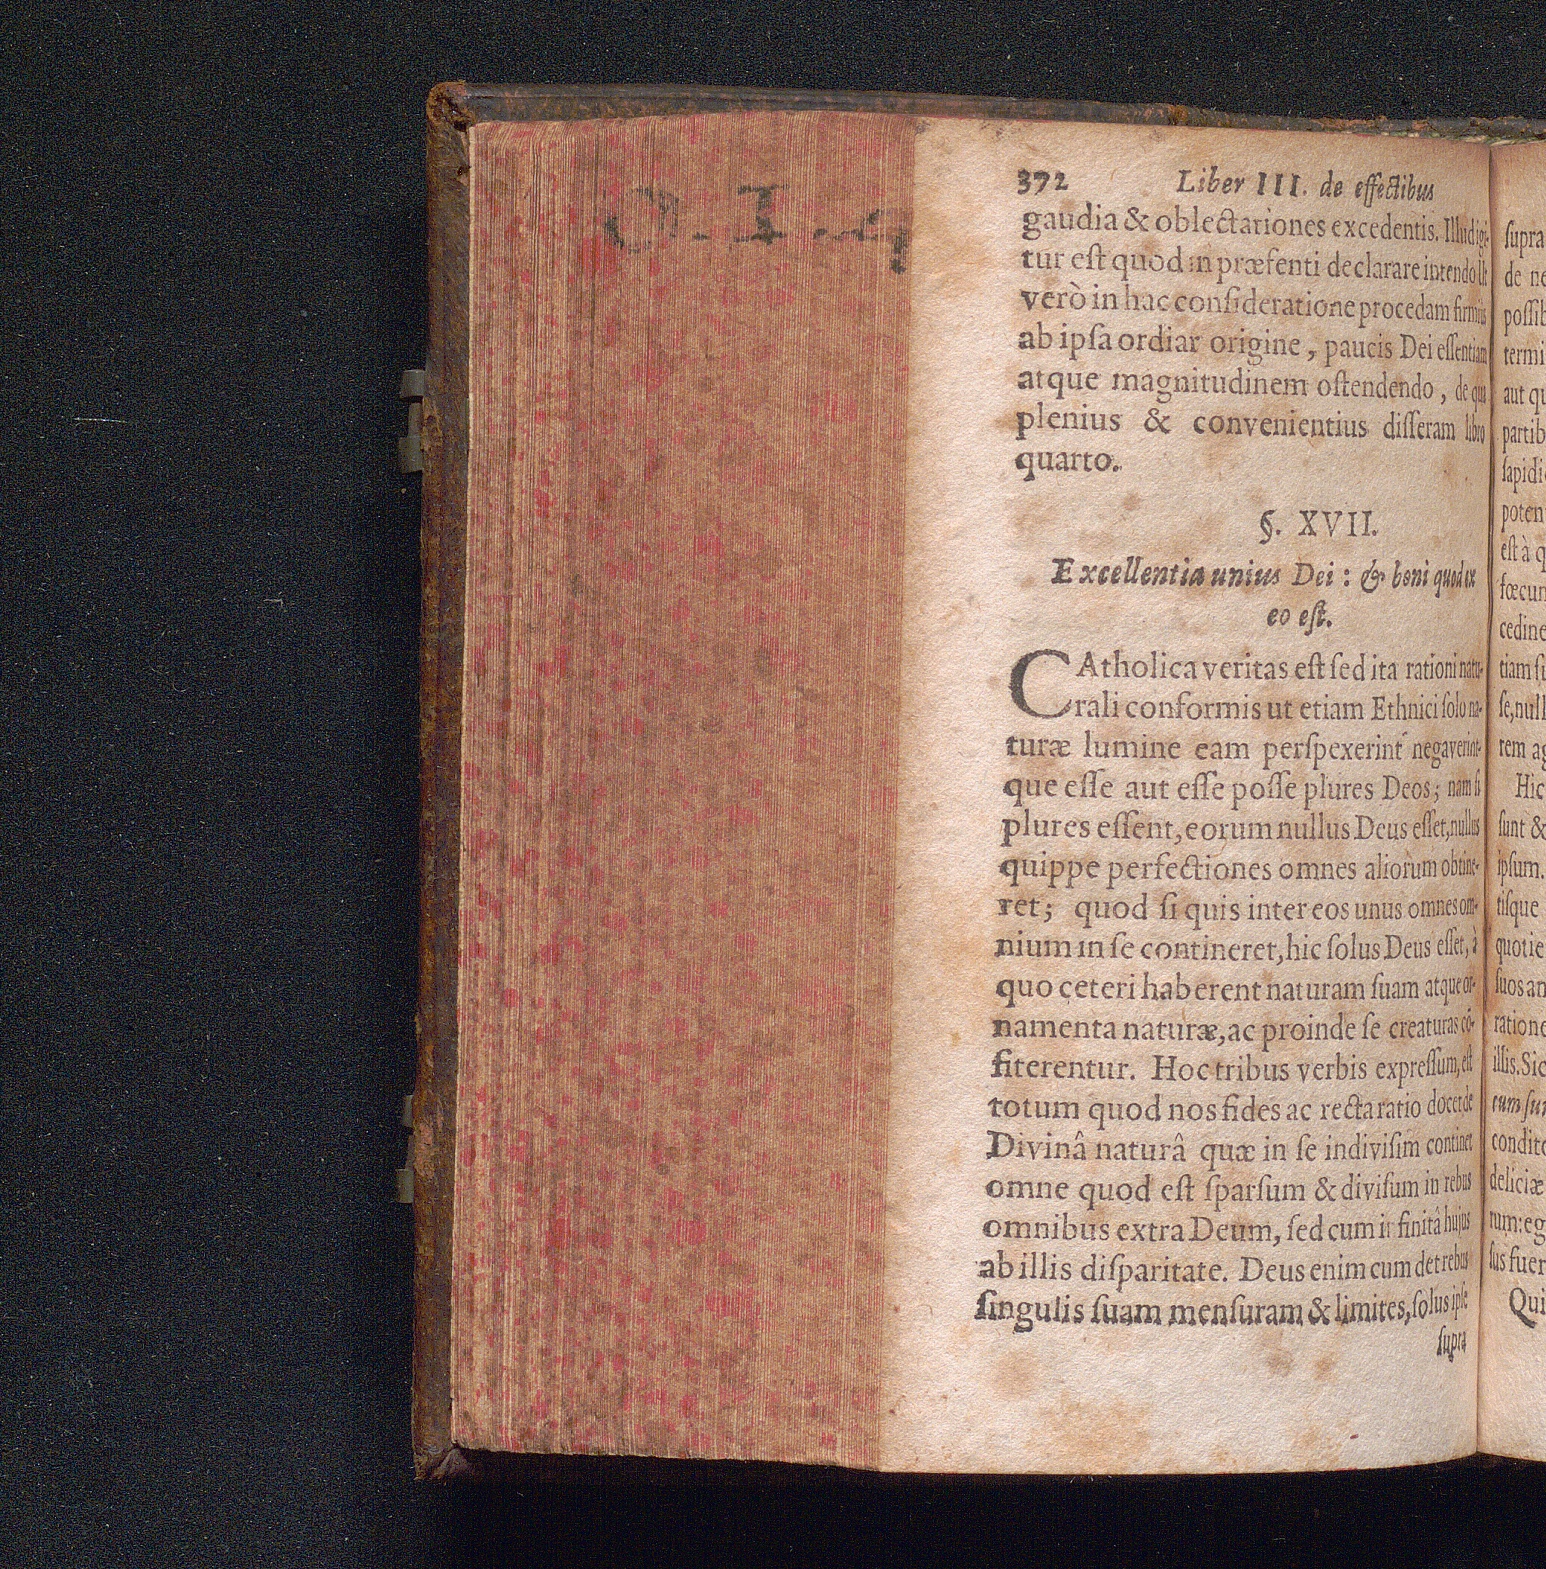 O. I. 9
372 Liber III. de effectibus
gaudia & oblectationes excedentis. Illud igi-
tur eſt quod in præſenti declarare intendo Ut
verò in hac conſideratione procedam firmiùs
ab ipſa ordiar origine, paucis Dei eſſentiam
atque magnitudinem oſtendendo, de qua
plenius & convenientius diſſeram libro
quarto.
§. XVII.
Excellentia unius Dei: & boni quod ex
eo eſt.
CAtholica veritas eſt ſed ita rationi natu-
rali conformis ut etiam Ethnici ſolo na-
turæ lumine eam perſpexerint negaverint-
que eſſe aut eſſe poſſe plures Deos; nam ſi
plures eſſent, eorum nullus Deus eſſet, nullus
quippe perfectiones omnes aliorum obtine-
ret; quod ſi quis inter eos unus omnes om-
nium in ſe contineret, hic ſolus Deus eſſet, à
quo ceteri haberent naturam ſuam atque or-
namenta naturæ, ac proinde ſe creaturas cō-
fiterentur. Hoc tribus verbis expreſſum, eſt
totum quod nos fides ac recta ratio docet de
Divinâ naturâ quæ in ſe indiviſim continet
omne quod eſt ſparſum & diviſum in rebus
omnibus extra Deum, ſed cum infinitâ hujus
ab illis diſparitate. Deus enim cum det rebus
ſingulis ſuam menſuram & limites, ſolus ipſe
ſupra
ſupra
de
termi
aut
eſt à
tiam
rem
Hic
ſunt &
ipſum.
tiſque
illis. Sic
cum
deliciæ
Qui